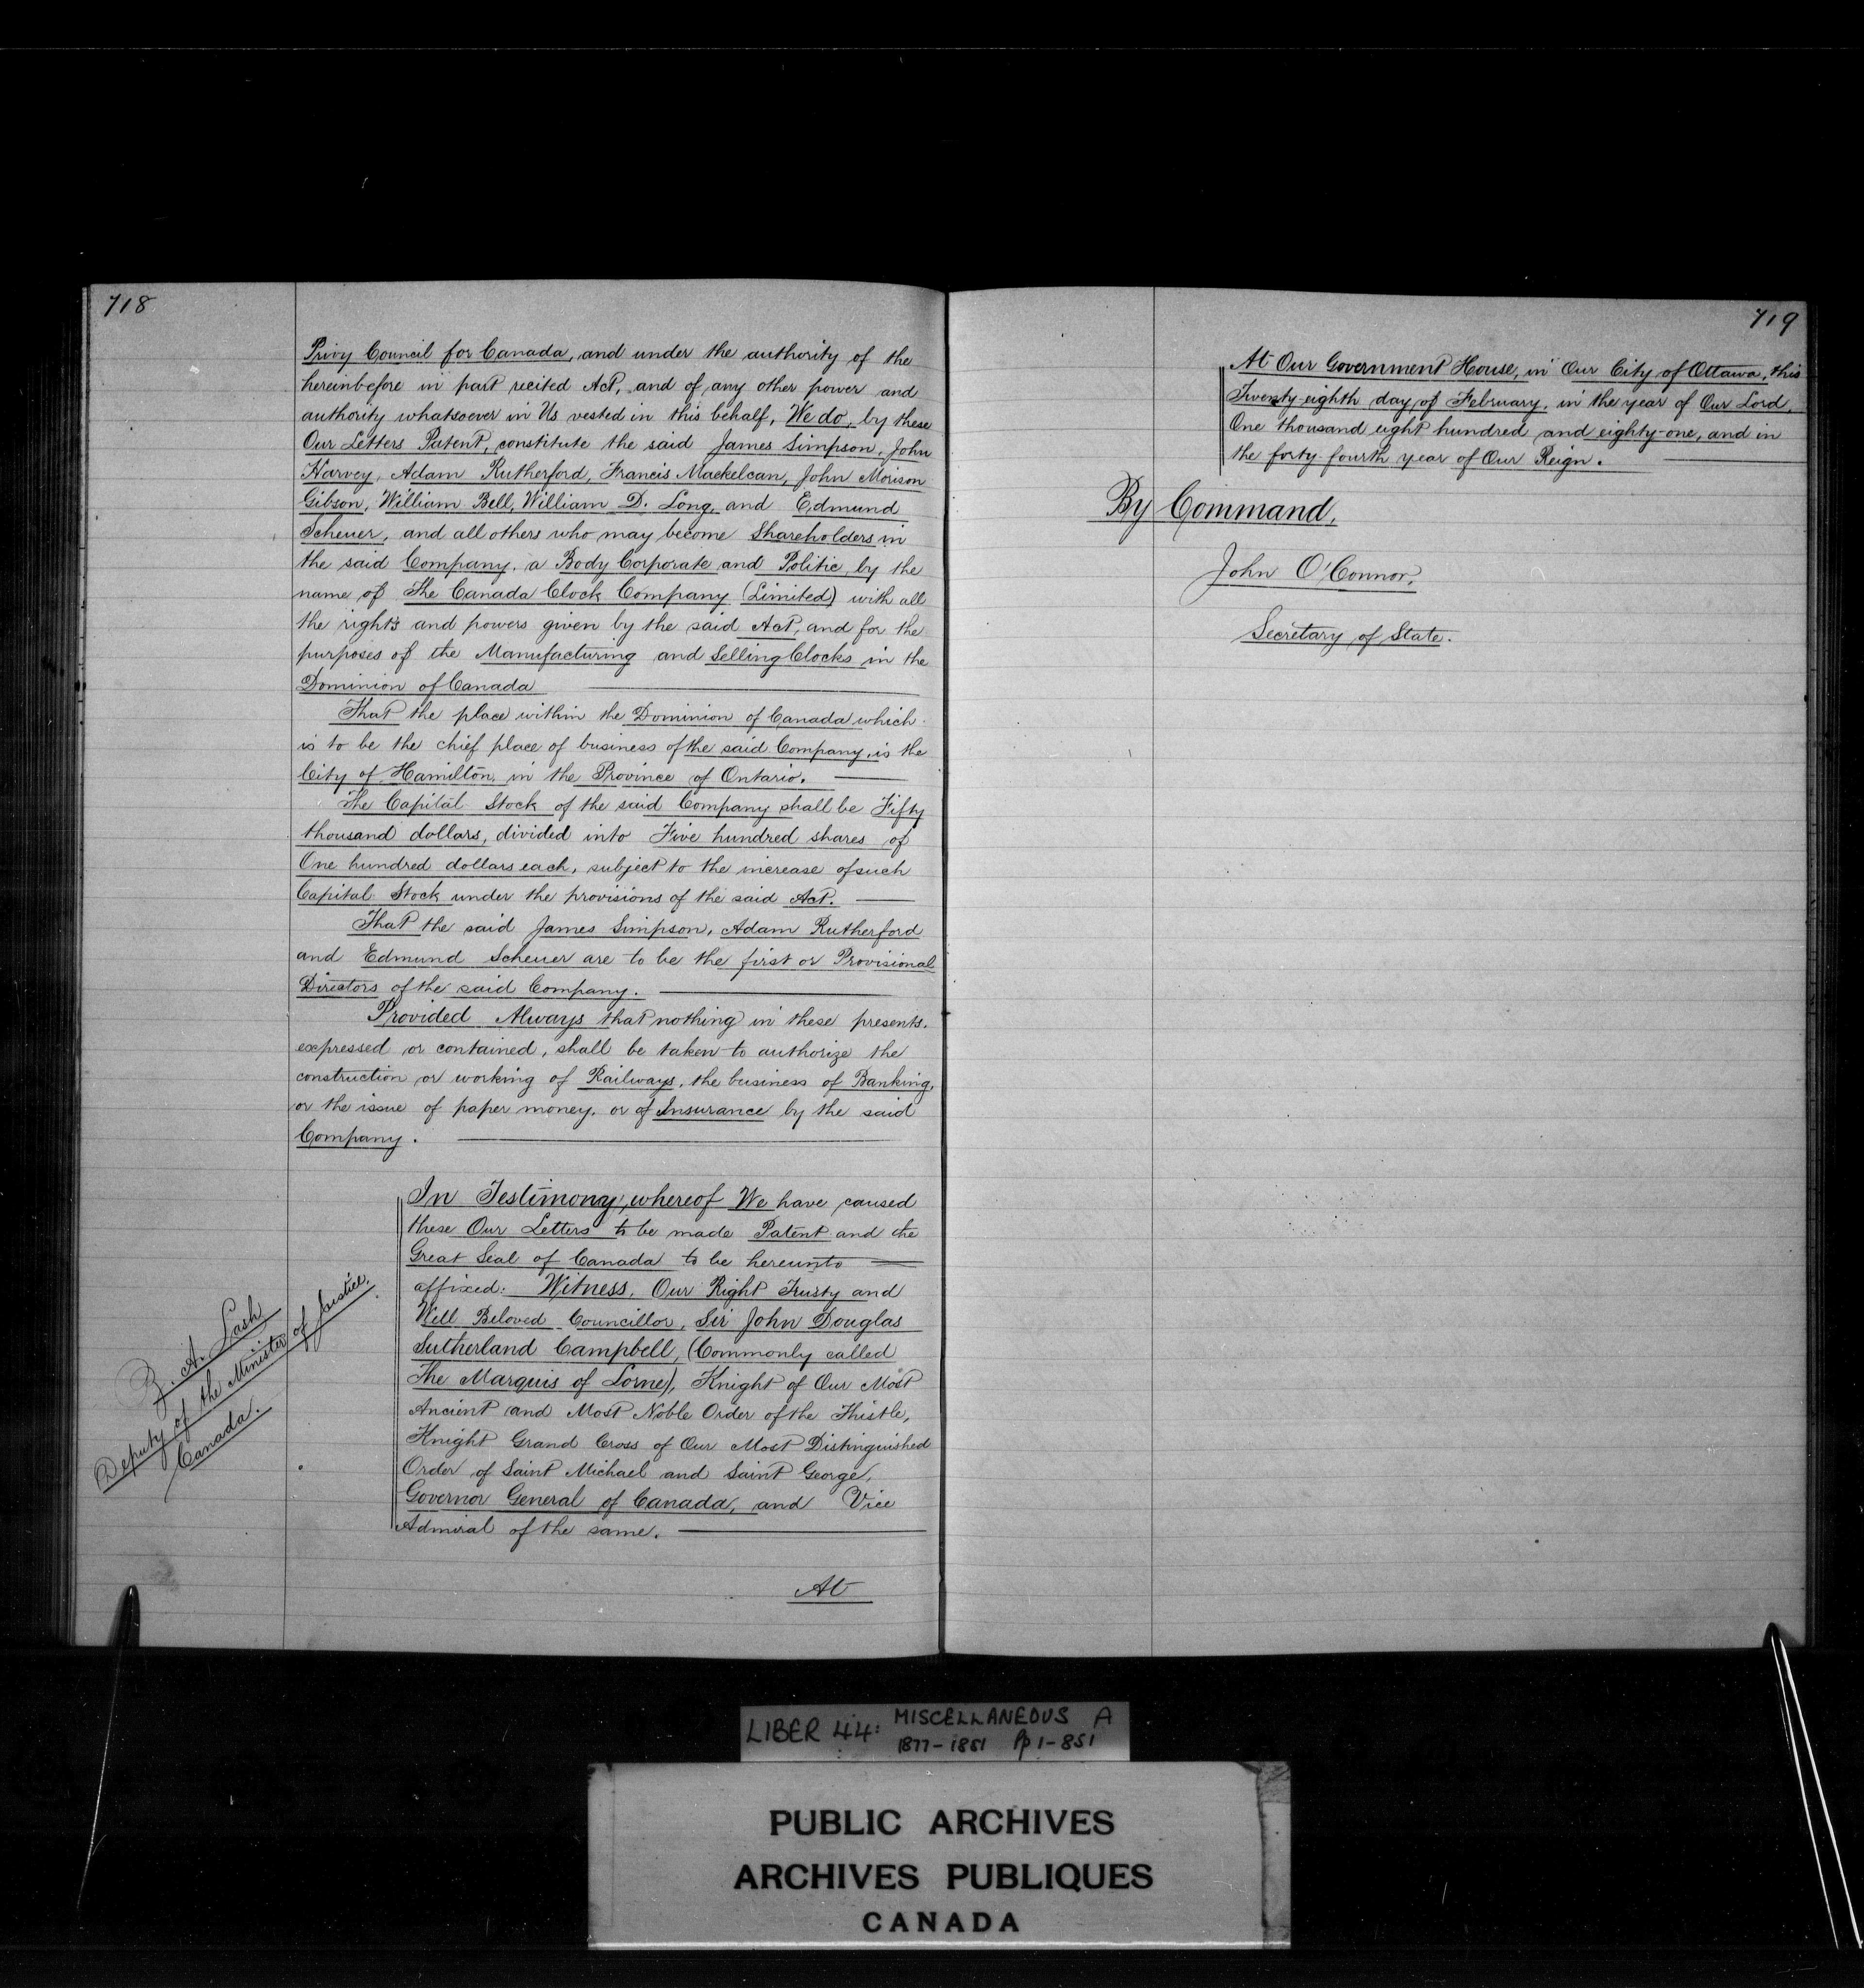 718
Privy Council for Canada, and under the authority of the
hereinbefore in part recited Act, and of any other power and
authority whatsoever in Us vested in this behalf, We do, by these
Our Letters Patent, constitute the said James Simpson, John
Harvey, Adam Rutherford, Francis Mackelcan, John Morison
Gibson, William Bell, William D. Long, and Edmund
Scheuer, and all others who may become Shareholders in
the said Company, a Body Corporate and Politic, by the
name of The Canada Clock Company (Limited) with all
the rights and powers given by the said Act, and for the
purposes of the Manufacturing and Selling Clocks in the
Dominion of Canada
That the place within the Dominion of Canada which
is to be the chief place of business of the said Company, is the
City of Hamilton, in the Province of Ontario.
The Capital Stock of the said Company shall be Fifty
thousand dollars, divided into Five hundred shares of
One hundred dollars each, subject to the increase of such
Capital Stock under the provisions of the said Act.
That the said James Simpson, Adam Rutherford
and Edmund Scheuer are to be the first or Provisional
Directors of the said Company.
Provided Always that nothing in these presents,
expressed or contained, shall be taken to authorize the
construction or working of Railways, the business of Banking,
or the issue of paper money, or of Insurance by the said
Company.
In Testimony, whereof We have caused
these Our Letters to be made Patent and the
Great Seal of Canada to be hereunto
affixed: Witness, Our Right Trusty and
Well Beloved Councillor, Sir John Douglas
Sutherland Campbell, (Commonly called
The Marquis of Lorne), Knight of Our Most
Ancient and Most Noble Order of the Thistle,
Knight Grand Cross of Our Most Distinguished
Order of Saint Michael and Saint George,
Governor General of Canada, and Vice
Admiral of the same.
Z. A. Lash
Deputy of the Minister of Justice.
Canada.
At
719
At Our Government House, in Our City of Ottawa, this
Twenty eighth day of February, in the year of Our Lord,
One thousand eight hundred and eighty-one, and in
the forty fourth year of Our Reign.
By Command,
John O'Connor,
Secretary of State.
LIBER 44: MISCELLANEOUS A
1877-1881 Pp 1-851
PUBLIC ARCHIVES
ARCHIVES PUBLIQUES
CANADA